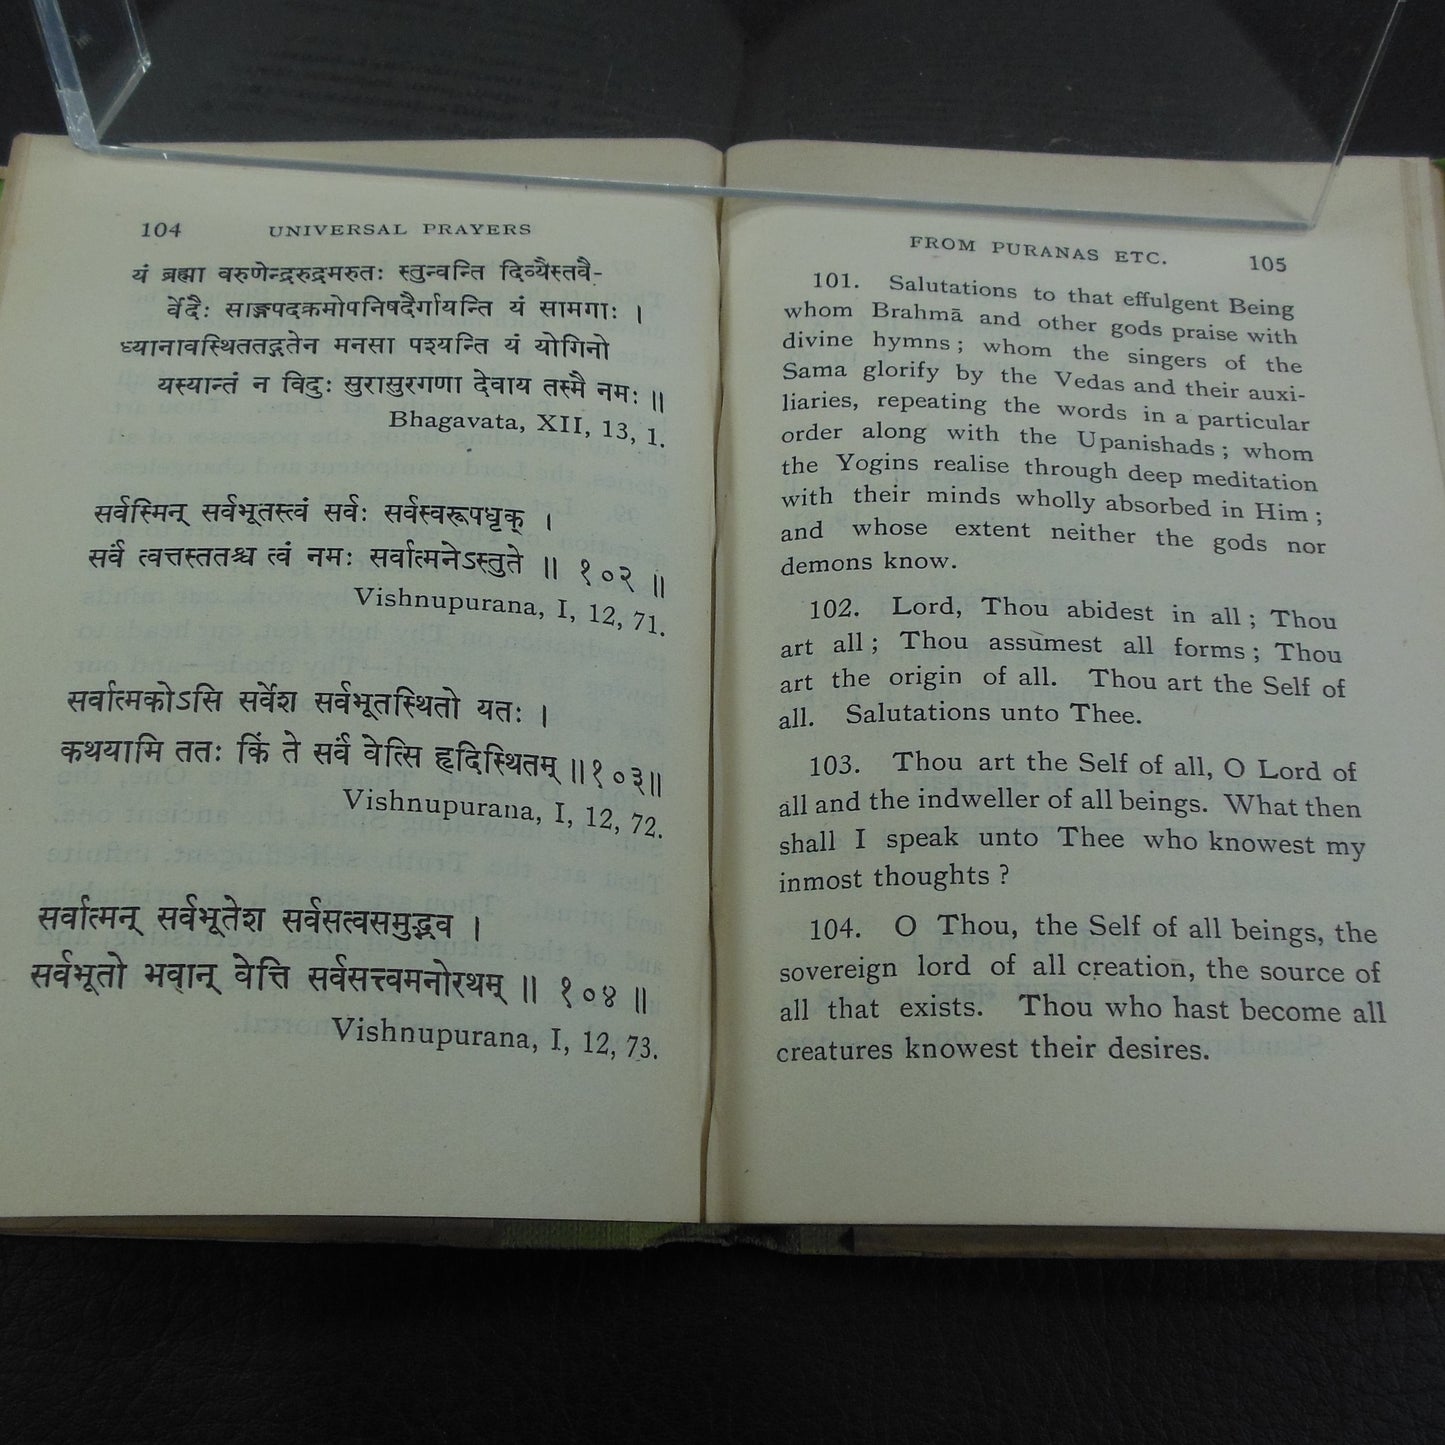 104 UNIVERSAL PRAYERS
यं ब्रह्मा वरुणेन्द्ररुद्रमरुतः स्तुन्वन्ति दिव्यैस्तवै-
र्वेदैः साङ्गपदक्रमोपनिषदैर्गायन्ति यं सामगाः ।
ध्यानावस्थिततद्गतेन मनसा पश्यन्ति यं योगिनो
यस्यान्तं न विदुः सुरासुरगणा देवाय तस्मै नमः ॥
Bhagavata, XII, 13, 1.
सर्वस्मिन् सर्वभूतस्त्वं सर्वः सर्वस्वरूपधृक् ।
सर्वं त्वत्तस्ततश्च त्वं नमः सर्वात्मनेऽस्तुते ॥ १०२ ॥
Vishnupurana, I, 12, 71.
सर्वात्मकोऽसि सर्वेश सर्वभूतस्थितो यतः ।
कथयामि ततः किं ते सर्वं वेत्सि हृदिस्थितम् ॥१०३॥
Vishnupurana, I, 12, 72.
सर्वात्मन् सर्वभूतेश सर्वसत्वसमुद्भव ।
सर्वभूतो भवान् वेत्ति सर्वसत्त्वमनोरथम् ॥ १०४ ॥
Vishnupurana, I, 12, 73.
FROM PURANAS ETC. 105
101. Salutations to that effulgent Being
whom Brahmā and other gods praise with
divine hymns ; whom the singers of the
Sama glorify by the Vedas and their auxi-
liaries, repeating the words in a particular
order along with the Upanishads ; whom
the Yogins realise through deep meditation
with their minds wholly absorbed in Him ;
and whose extent neither the gods nor
demons know.
102. Lord, Thou abidest in all ; Thou
art all ; Thou assumest all forms ; Thou
art the origin of all. Thou art the Self of
all. Salutations unto Thee.
103. Thou art the Self of all, O Lord of
all and the indweller of all beings. What then
shall I speak unto Thee who knowest my
inmost thoughts ?
104. O Thou, the Self of all beings, the
sovereign lord of all creation, the source of
all that exists. Thou who hast become all
creatures knowest their desires.